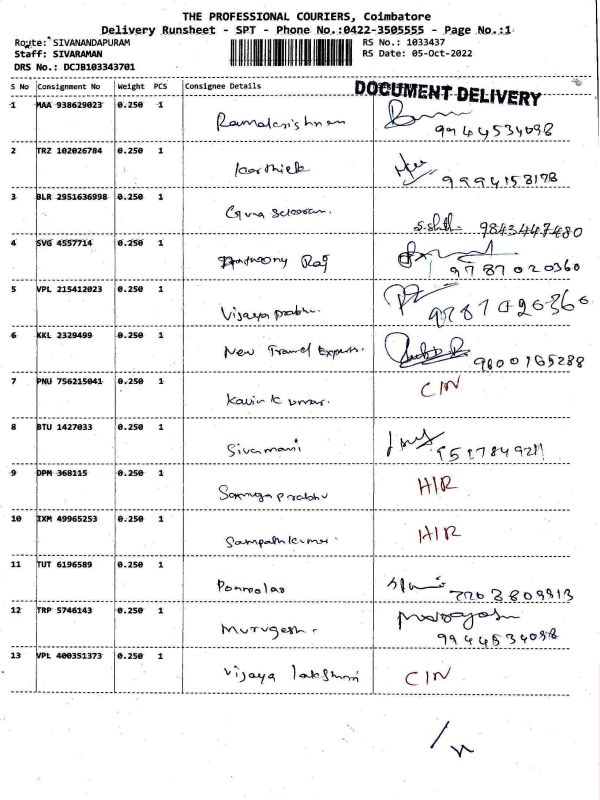 THE PROFESSIONAL COURIERS, Coimbatore
Delivery Runsheet - SPT - Phone No.:0422-3505555 - Page No.:1
Route: SIVANANDAPURAM RS No.: 1033437
Staff: SIVARAMAN RS Date: 05-Oct-2022
DRS No.: DCJB103343701
S No Consignment No Weight PCS Consignee Details
DOCUMENT DELIVERY
1 MAA 938629023 0.250 1
Ramakrishnan
9944534098
2 TRZ 102026784 0.250 1
Karthick
9994158178
3 BLR 2951636998 0.250 1
Guna Selvaran.
9843447480
4 SVG 4557714 0.250 1
Anthoony Raj
9787020360
5 VPL 215412023 0.250 1
Vijaya prabhu.
9787020360
6 KKL 2329499 0.250 1
New Travel Experts.
9600165288
7 PNU 756215041 0.250 1 CIN
Kavin Kumar.
8 BTU 1427033 0.250 1
Sivamani
9 DPM 368115 0.250 1 HIR
prabhu
10 IXM 49965253 0.250 1 HIR
Sampathkumar.
11 TUT 6196589 0.250 1
12 TRP 5746143 0.250 1
Murugesh.
9944534098
13 VPL 400351373 0.250 1
Vijaya lakshmi CIN